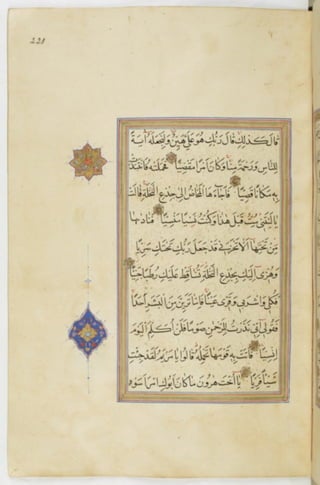 قَالَ كَذَلِكِ قَالَ رَبُّكِ هُوَ عَلَيَّ هَيِّنٌ وَلِنَجْعَلَهُ آيَةً
لِلنَّاسِ وَرَحْمَةً مِنَّا وَكَانَ أَمْرًا مَقْضِيًّا فَحَمَلَتْهُ فَانْتَبَذَتْ
بِهِ مَكَانًا قَصِيًّا فَأَجَاءَهَا الْمَخَاضُ إِلَى جِذْعِ النَّخْلَةِ قَالَتْ
يَا لَيْتَنِي مِتُّ قَبْلَ هَذَا وَكُنْتُ نَسْيًا مَنْسِيًّا فَنَادَاهَا
مِنْ تَحْتِهَا أَلَّا تَحْزَنِي قَدْ جَعَلَ رَبُّكِ تَحْتَكِ سَرِيًّا
وَهُزِّي إِلَيْكِ بِجِذْعِ النَّخْلَةِ تُسَاقِطْ عَلَيْكِ رُطَبًا جَنِيًّا
فَكُلِي وَاشْرَبِي وَقَرِّي عَيْنًا فَإِمَّا تَرَيِنَّ مِنَ الْبَشَرِ أَحَدًا
فَقُولِي إِنِّي نَذَرْتُ لِلرَّحْمَنِ صَوْمًا فَلَنْ أُكَلِّمَ الْيَوْمَ
إِنْسِيًّا فَأَتَتْ بِهِ قَوْمَهَا تَحْمِلُهُ قَالُوا يَا مَرْيَمُ لَقَدْ جِئْتِ
شَيْئًا فَرِيًّا يَا أُخْتَ هَرُونَ مَا كَانَ أَبُوكِ امْرَأَ سَوْءٍ